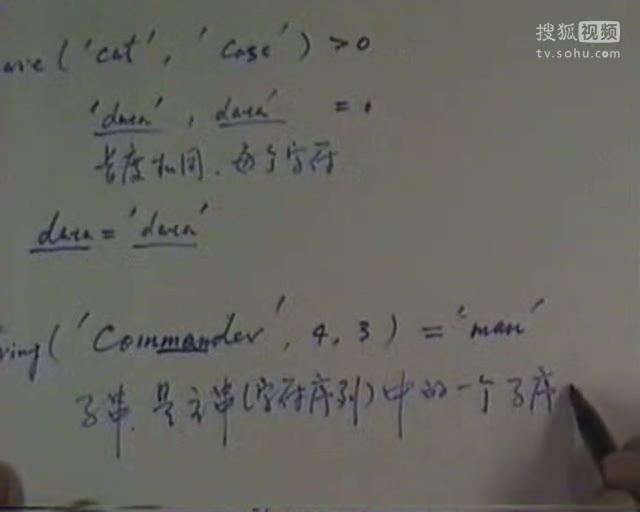 搜狐视频
tv.sohu.com
('cat', 'case') > 0
'data', data =
长度相同. 每个字符
data = 'data'
ring('Commander', 4, 3) = 'man'
子串. 是主串(字符序列)中的一个子序